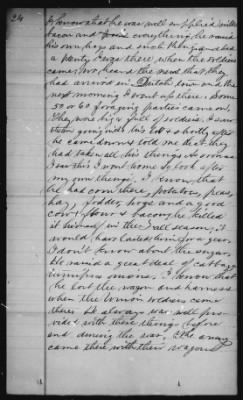 24
I know that he was well supplied with
bacon and everything, he raised
his own hogs and such things and had
a plenty. I was there, when the soldiers
came, we heard the word that they
had arrived in town and the
next morning I went up there. Some
50 or 60 foraging parties came on,
They wore full of soldiers. I saw
going with his & shortly after
he came down & told me that they
had taken all his things. As soon as
I saw this I went home to look after
my own things. I know, that
he had corn there, potatoes, peas,
hay, fodder, hogs and a good
cow, flour & bacon, he killed
it himself, in the fall season, it
would have lasted him for a year.
I don't know about the sugar.
He raised a great deal of cabbage
turnips onions. I know that
he lost the wagon and harness
when the Union soldiers come
there. He always was well pro-
vided with these things before
and during the war. The army
came there with their wagons